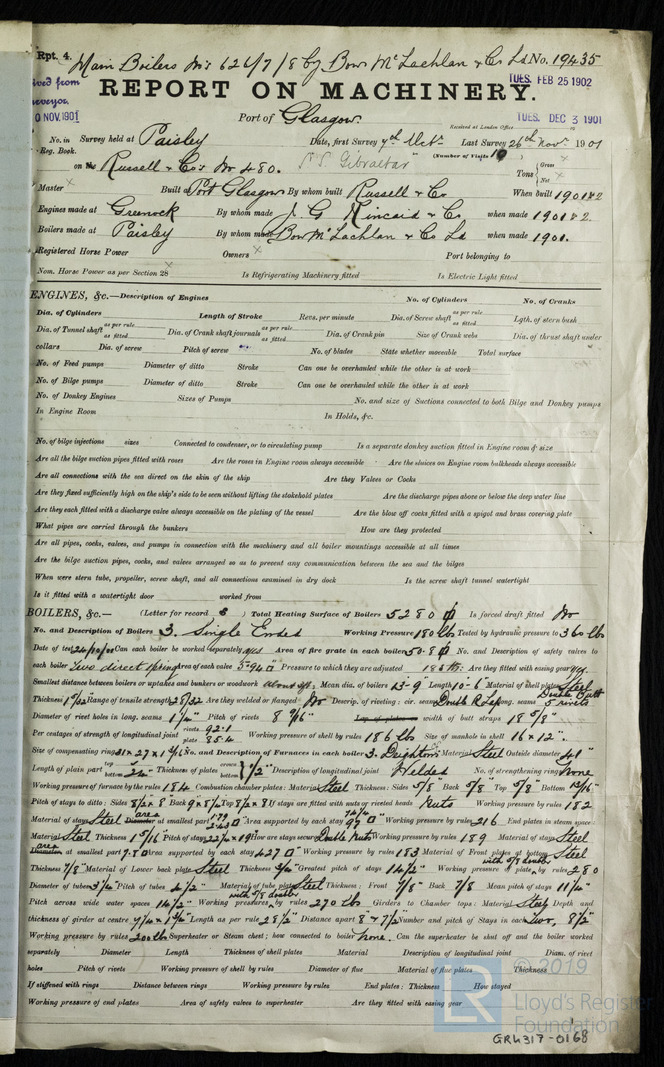 Rpt. 4. Main Boilers No's 626/7/8 by Bow McLachlan & Co Ld No. 19435
TUES. FEB 25 1902
REPORT ON MACHINERY.
NOV. 1901
Port of Glasgow
Received at London Office TUES. DEC 3 1901
No. in Reg. Book. Survey held at Paisley Date, first Survey 7th Octr Last Survey 26th Novr 1901
(Number of Visits 10)
on the Russell & Co's No 480. S.S. Gibraltar Tons Gross Net
Master Built at Port Glasgow By whom built Russell & Co When built 1901&2
Engines made at Greenock By whom made J. G Kincaid & Co when made 1901&2.
Boilers made at Paisley By whom made Bow McLachlan & Co Ld when made 1901.
Registered Horse Power Owners Port belonging to
Nom. Horse Power as per Section 28 Is Refrigerating Machinery fitted Is Electric Light fitted
ENGINES, &c.—Description of Engines No. of Cylinders No. of Cranks
Dia. of Cylinders Length of Stroke Revs. per minute Dia. of Screw shaft as per rule as fitted Lgth. of stern bush
Dia. of Tunnel shaft as per rule as fitted Dia. of Crank shaft journals as per rule as fitted Dia. of Crank pin Size of Crank webs Dia. of thrust shaft under
collars Dia. of screw Pitch of screw No. of blades State whether moveable Total surface
No. of Feed pumps Diameter of ditto Stroke Can one be overhauled while the other is at work
No. of Bilge pumps Diameter of ditto Stroke Can one be overhauled while the other is at work
No. of Donkey Engines Sizes of Pumps No. and size of Suctions connected to both Bilge and Donkey pumps
In Engine Room In Holds, &c.
No. of bilge injections sizes Connected to condenser, or to circulating pump Is a separate donkey suction fitted in Engine room & size
Are all the bilge suction pipes fitted with roses Are the roses in Engine room always accessible Are the sluices on Engine room bulkheads always accessible
Are all connections with the sea direct on the skin of the ship Are they Valves or Cocks
Are they fixed sufficiently high on the ship's side to be seen without lifting the stokehold plates Are the discharge pipes above or below the deep water line
Are they each fitted with a discharge valve always accessible on the plating of the vessel Are the blow off cocks fitted with a spigot and brass covering plate
What pipes are carried through the bunkers How are they protected
Are all pipes, cocks, valves, and pumps in connection with the machinery and all boiler mountings accessible at all times
Are the bilge suction pipes, cocks, and valves arranged so as to prevent any communication between the sea and the bilges
When were stern tube, propeller, screw shaft, and all connections examined in dry dock Is the screw shaft tunnel watertight
Is it fitted with a watertight door worked from
BOILERS, &c.— (Letter for record S) Total Heating Surface of Boilers 5280 Is forced draft fitted No
No. and Description of Boilers 3. Single Ended Working Pressure 180 lbs Tested by hydraulic pressure to 360 lbs
Date of test Can each boiler be worked separately yes Area of fire grate in each boiler 50.8 No. and Description of safety valves to
each boiler Two direct spring Area of each valve 5.94 Pressure to which they are adjusted 185 lbs. Are they fitted with easing gear yes
Smallest distance between boilers or uptakes and bunkers or woodwork Mean dia. of boilers 13-9" Length 10-6" Material of shell plates Steel
Thickness Range of tensile strength 28/32 Are they welded or flanged No Descrip. of riveting: cir. seams Double R Lap long. seams Double Butt 5 rivets
Diameter of rivet holes in long. seams 1¼" Pitch of rivets 8 9/16" Lap of plates or width of butt straps 18 5/8"
Per centages of strength of longitudinal joint rivets 92.1 plate 85.4 Working pressure of shell by rules 186 lbs Size of manhole in shell 16 x 12".
Size of compensating ring No. and Description of Furnaces in each boiler 3. Deightons Material Steel Outside diameter 41"
Length of plain part top bottom Thickness of plates crown bottom 1/2" Description of longitudinal joint Welded No. of strengthening rings None
Working pressure of furnace by the rules 184 Combustion chamber plates: Material Steel Thickness: Sides 5/8" Back 5/8" Top 5/8" Bottom 13/16"
Pitch of stays to ditto: Sides 8½ x 8 Back 9 x 8½ Top 8½ x 8 If stays are fitted with nuts or riveted heads Nuts Working pressure by rules 182
Material of stays Steel area Diameter at smallest part Area supported by each stay Working pressure by rules 216 End plates in steam space:
Material Steel Thickness 15/16 Pitch of stays How are stays secured Double Nuts Working pressure by rules 189 Material of stays Steel
area Diameter at smallest part 7.80 Area supported by each stay 427 Working pressure by rules 183 Material of Front plates at bottom Steel
Thickness 7/8" Material of Lower back plate Steel Thickness Greatest pitch of stays 14½" Working pressure of plate by rules 280
with 5/8 doubler
Diameter of tubes 3¼" Pitch of tubes 4½" Material of tube plates Steel Thickness: Front 7/8" Back 7/8 Mean pitch of stays 11¼"
with 5/8 doubler
Pitch across wide water spaces 14½" Working pressures by rules 270 lbs Girders to Chamber tops: Material Steel Depth and
thickness of girder at centre Length as per rule 28½" Distance apart 8 & 7½" Number and pitch of Stays in each Two, 8½"
Working pressure by rules 200 lbs Superheater or Steam chest; how connected to boiler None. Can the superheater be shut off and the boiler worked
separately Diameter Length Thickness of shell plates Material Description of longitudinal joint Diam. of rivet
holes Pitch of rivets Working pressure of shell by rules Diameter of flue Material of flue plates Thickness
If stiffened with rings Distance between rings Working pressure by rules End plates: Thickness How stayed
Working pressure of end plates Area of safety valves to superheater Are they fitted with easing gear
© 2019
LR Lloyd's Register
Foundation
GR4317-0168